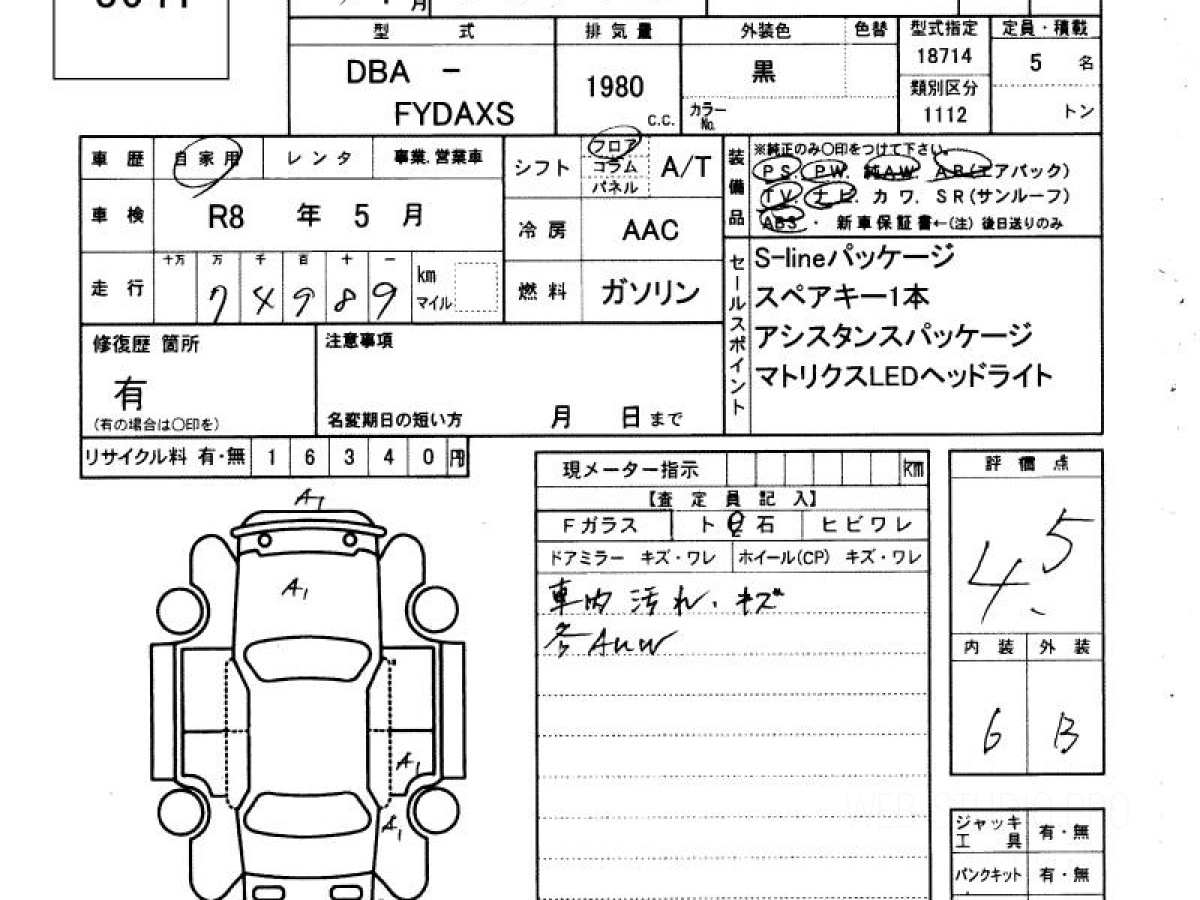 月
型 式 排気量 外装色 色替 型式指定 定員・積載
DBA - 1980 黒 18714 5 名
類別区分
FYDAXS c.c. カラーNo. 1112 トン
車歴 自家用 レンタ 事業.営業車 シフト フロア コラム パネル A/T
装備品 ※純正のみ〇印をつけて下さい。
PS. PW. 純AW. AB(エアバック)
TV. ナビ. カワ. SR(サンルーフ)
ABS ・ 新車保証書←(注) 後日送りのみ
車検 R8 年 5 月 冷房 AAC
走行 十万 万 千 百 十 一 km マイル
7 4 9 8 9
燃料 ガソリン
セールスポイント
S-lineパッケージ
スペアキー1本
アシスタンスパッケージ
マトリクスLEDヘッドライト
修復歴 箇所 注意事項
有
(有の場合は〇印を) 名変期日の短い方 月 日 まで
リサイクル料 有・無 1 6 3 4 0 円
現メーター指示 km
【査定員記入】
Fガラス ト 石 ヒビワレ
ドアミラー キズ・ワレ ホイール(CP) キズ・ワレ
車内 汚れ、キズ
各AUW
評価点
4.5
内装 外装
6 B
ジャッキ 工具 有・無
パンクキット 有・無
A1
A1
A1
A1